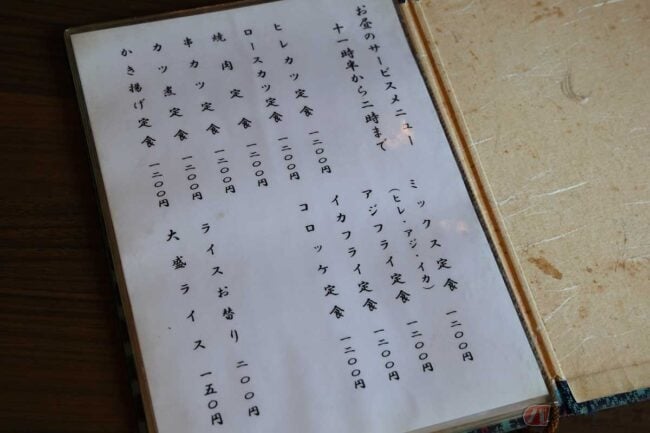 お昼のサービスメニュー
十一時半から二時まで
ヒレカツ定食 一二〇〇円
ロースカツ定食 一二〇〇円
焼肉定食 一二〇〇円
串カツ定食 一二〇〇円
カツ煮定食 一二〇〇円
かき揚げ定食 一二〇〇円
ミックス定食 一二〇〇円
(ヒレ・アジ・イカ)
アジフライ定食 一二〇〇円
イカフライ定食 一二〇〇円
コロッケ定食 一二〇〇円
ライスお替り 二〇〇円
大盛ライス 一五〇円